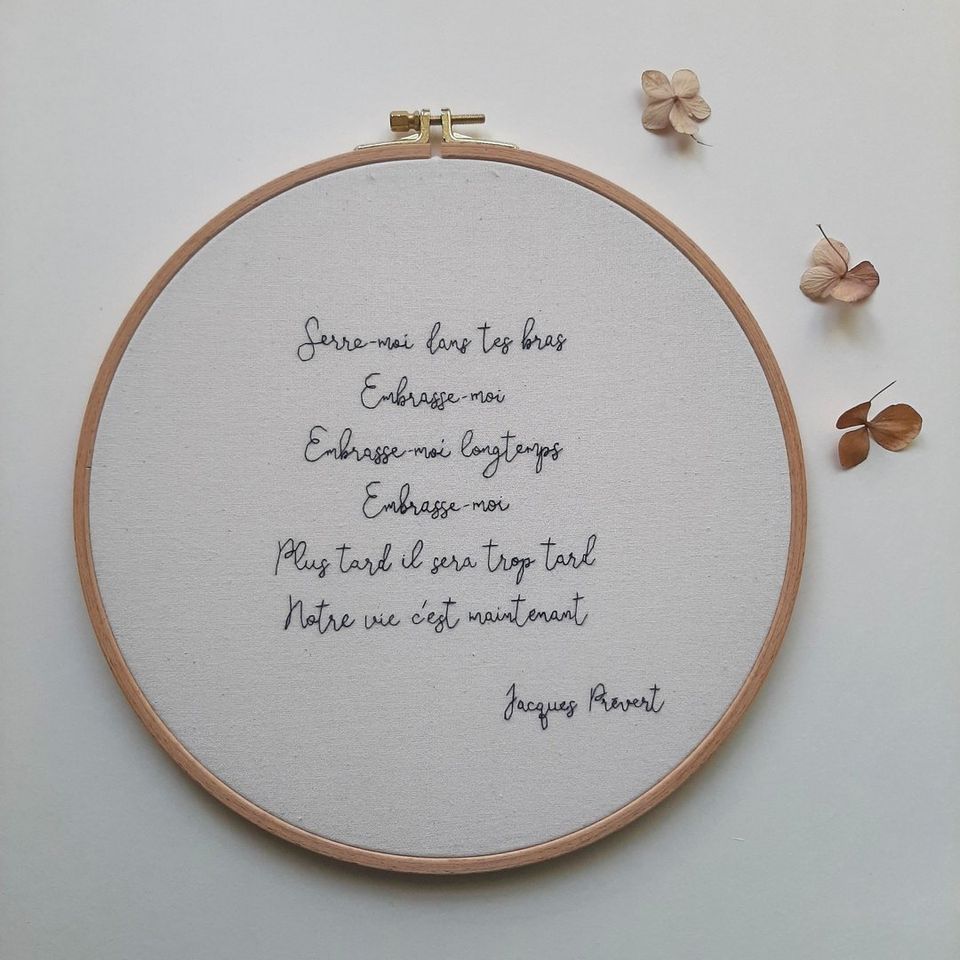 Serre-moi dans tes bras
Embrasse-moi
Embrasse-moi longtemps
Embrasse-moi
Plus tard il sera trop tard
Notre vie c'est maintenant
Jacques Prévert